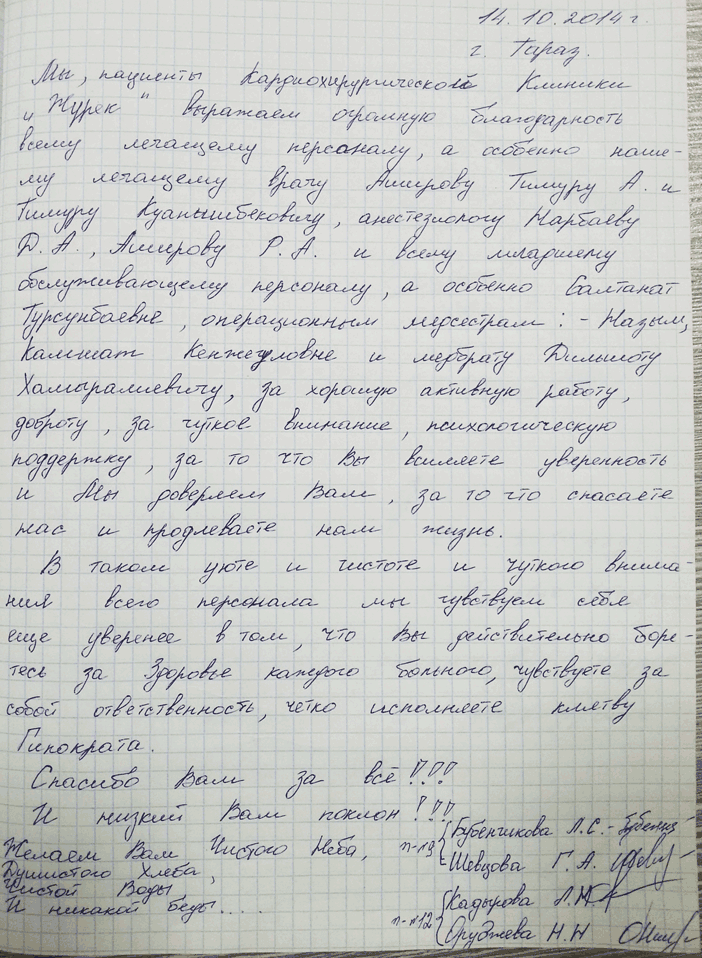 14.10.2014г.
г. Тараз.
Мы, пациенты Кардиохирургической Клиники
"Жүрек" выражаем огромную благодарность
всему лечащему персоналу, а особенно наше-
му лечащему врачу Амирову Тимуру А. и
Тимуру Куанышбековичу, анестезиологу Нарбаеву
Д.А., Амирову Р.А. и всему младшему
обслуживающему персоналу, а особенно Салтанат
Турсунбаевне, операционным медсестрам: - Назым,
Камшат Кенжегуловне и медбрату Дильшоту
Хамыралиевичу, за хорошую активную работу,
доброту, за чуткое внимание, психологическую
поддержку, за то что Вы вселяете уверенность
и Мы доверяем Вам, за то что спасаете
нас и продлеваете нам жизнь.
В таком уюте и чистоте и чуткого внима-
ния всего персонала мы чувствуем себя
еще уверенее в том, что Вы действительно боре-
тесь за Здоровье каждого больного, чувствуете за
собой ответственность, четко исполняете клятву
Гипократа.
Спасибо Вам за всё!!!
И низкий Вам поклон!!!
Желаем Вам Чистого Неба,
Душистого Хлеба,
Чистой Воды
И никакой беды....
п-л9 Бубенчикова Л.С.-
Шевцова Г.А.
п-л12 Кадырова Л.
Оруджева Н.Н